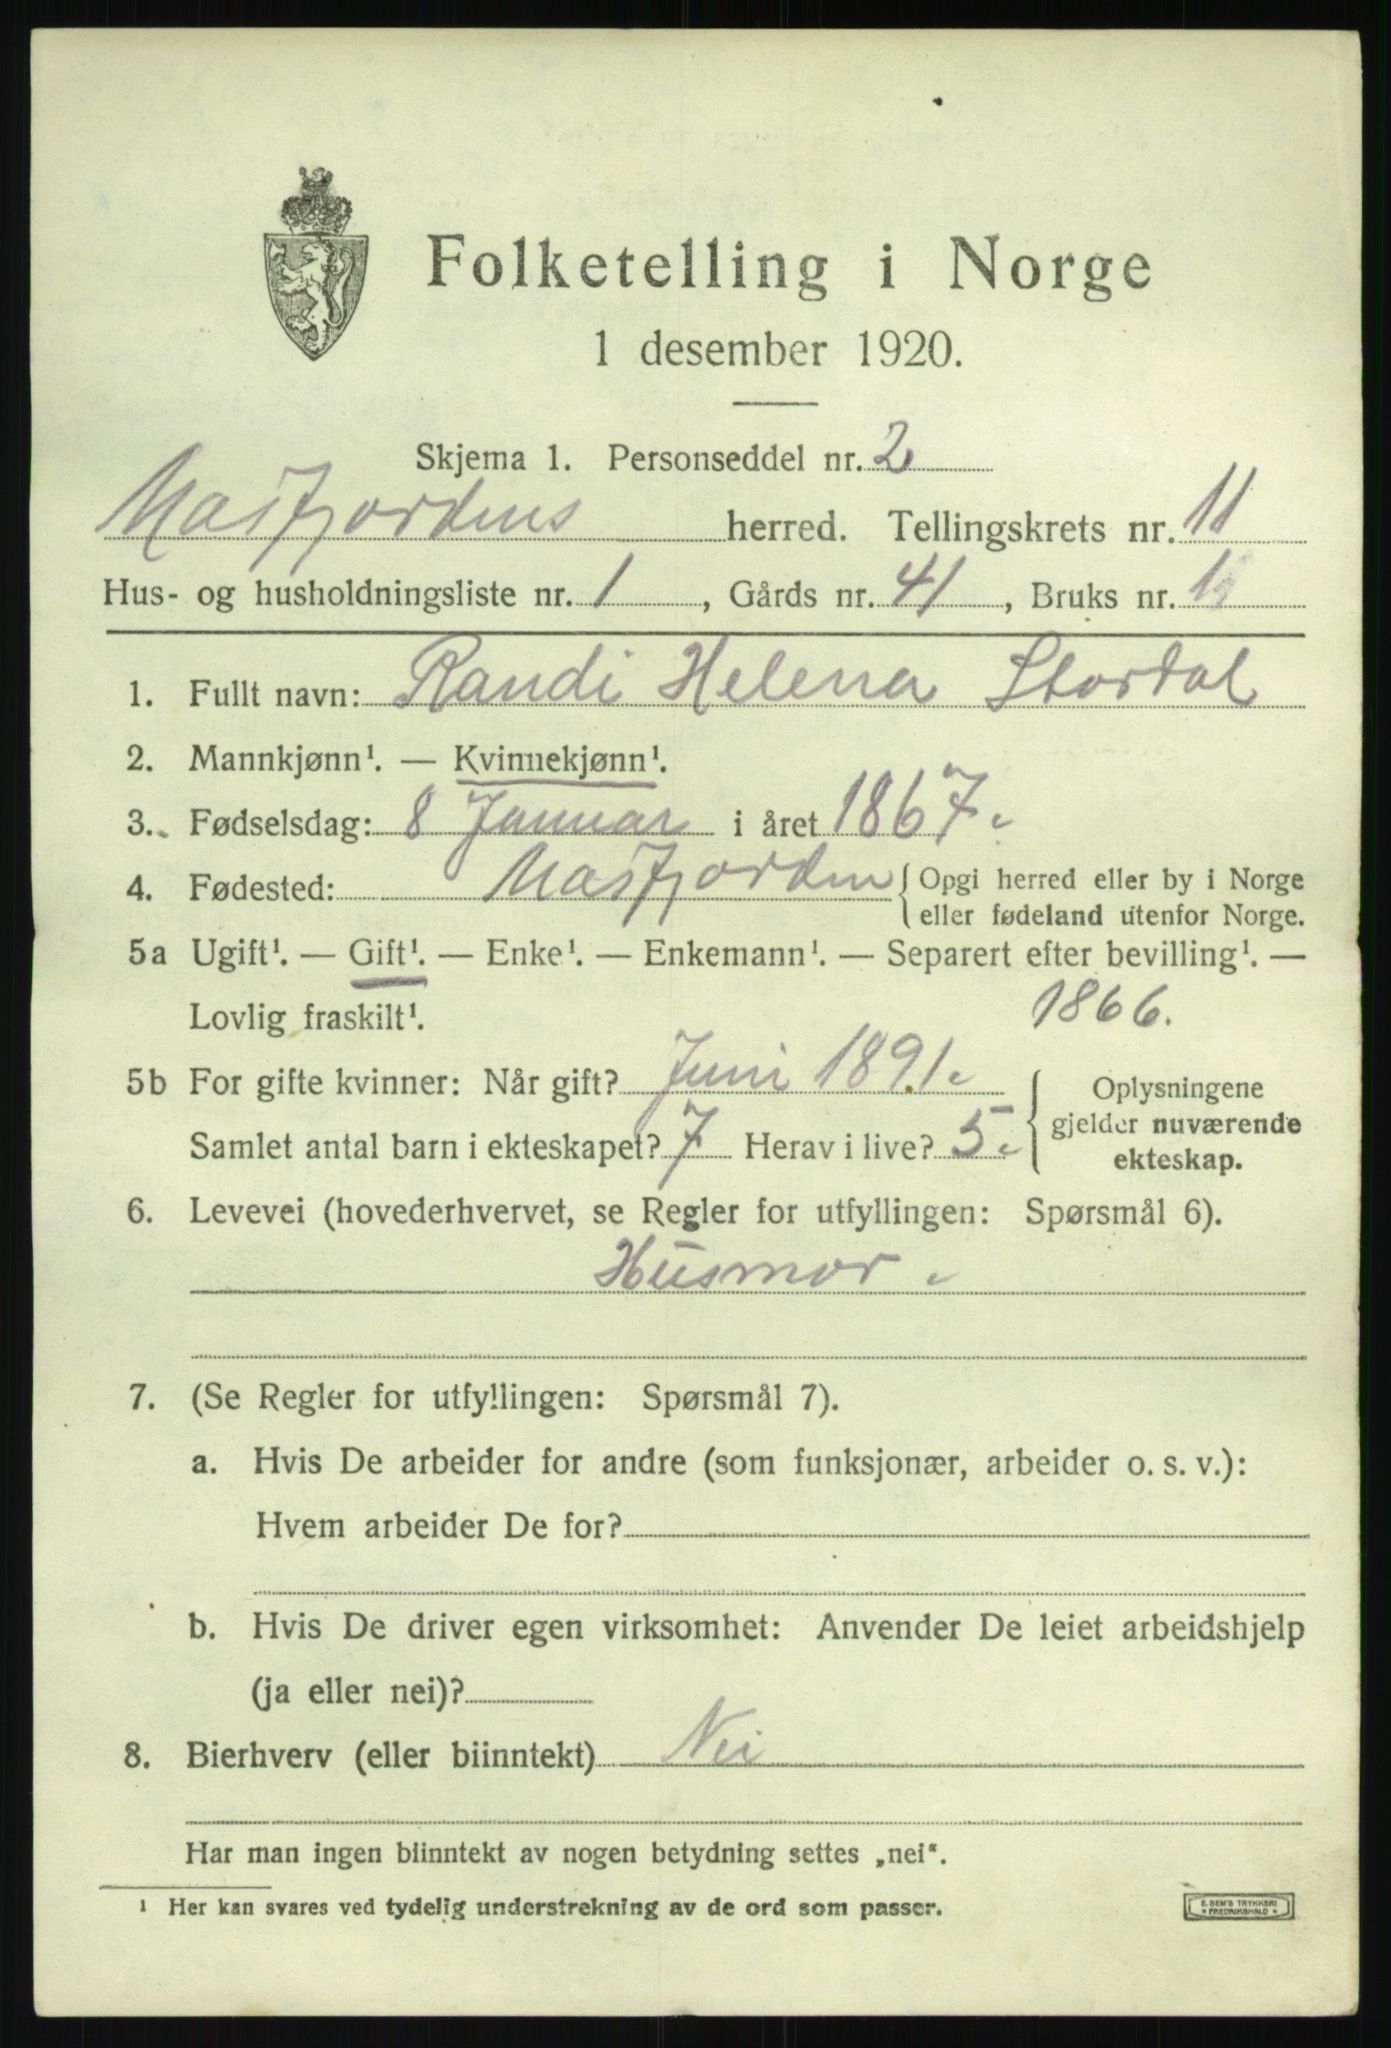 Folketelling i Norge
1 desember 1920.
Skjema 1. Personseddel nr. 2
Masfjordens herred. Tellingskrets nr. 11
Hus- og husholdningsliste nr. 1, Gårds nr. 41, Bruks nr. 1
1. Fullt navn: Randi Helena Stordal
2. Mannkjønn¹. — Kvinnekjønn¹.
3. Fødselsdag: 8 Januar i året 1867.
4. Fødested: Masfjorden {Opgi herred eller by i Norge
eller fødeland utenfor Norge.
5a Ugift¹. — Gift¹. — Enke¹. — Enkemann¹. — Separert efter bevilling¹. —
Lovlig fraskilt¹. 1866.
5b For gifte kvinner: Når gift? Juni 1891. { Oplysningene
gjelder nuværende
Samlet antal barn i ekteskapet? 7 Herav i live? 5.
ekteskap.
6. Levevei (hovederhvervet, se Regler for utfyllingen: Spørsmål 6).
Husmor.
7. (Se Regler for utfyllingen: Spørsmål 7).
a. Hvis De arbeider for andre (som funksjonær, arbeider o. s. v.):
Hvem arbeider De for?
b. Hvis De driver egen virksomhet: Anvender De leiet arbeidshjelp
(ja eller nei)?
8. Bierhverv (eller biinntekt) Nei
Har man ingen biinntekt av nogen betydning settes „nei“.
¹ Her kan svares ved tydelig understrekning av de ord som passer.
E. SEM'S TRYKKERI
* FREDRIKSHALD *